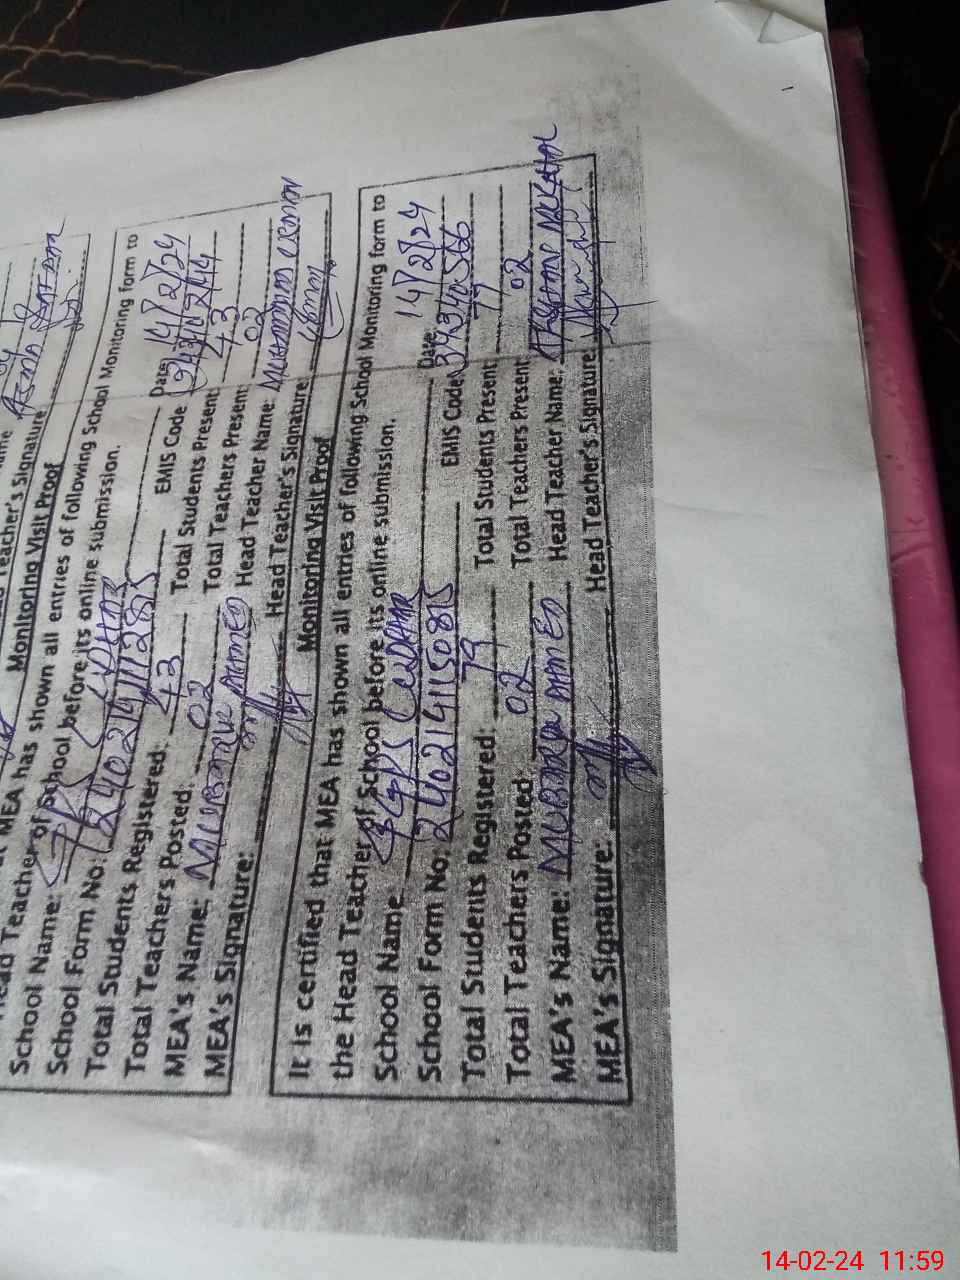 Teacher's Signature
Monitoring Visit Proof
MEA has shown all entries of following School Monitoring form to
Head Teacher of School before its online submission.
School Name: Date 14/2/24
School Form No: EMIS Code
Total Students Registered: 43 Total Students Present: 43
Total Teachers Posted: 02 Total Teachers Present: 02
MEA's Name: MUBARAK AHMED Head Teacher Name: MUHAMMAD USMAN
MEA's Signature: Head Teacher's Signature:
Monitoring Visit Proof
It is certified that MEA has shown all entries of following School Monitoring form to
the Head Teacher of School before its online submission.
School Name GGPS Date 14/2/24
School Form No: 240214150815 EMIS Code
Total Students Registered: 79 Total Students Present 79
Total Teachers Posted: 02 Total Teachers Present: 02
MEA's Name: MUBARAK AHMED Head Teacher Name:
MEA's Signature: Head Teacher's Signature:
14-02-24 11:59